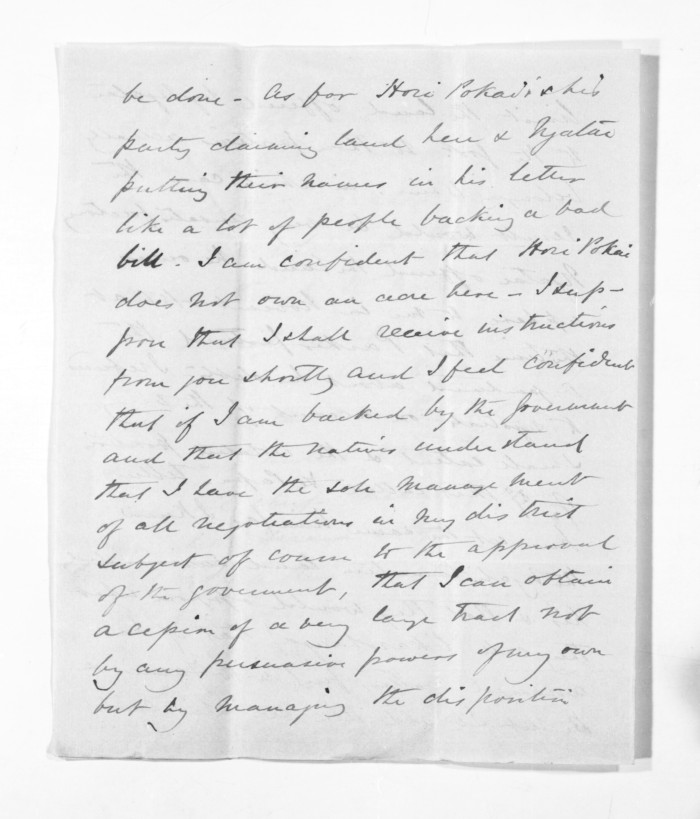 be done - As for Hori Pokai & his
party claiming land here & Ngatai
putting their names in his letter
like a lot of people backing a bad
bill - I am confident that Hori Pokai
does not own an acre here - I sup-
pose that I shall receive instructions
from you shortly and I feel confident
that if I am backed by the Government
and that the natives understand
that I have the sole management
of all negotiations in my district
subject of course to the approval
of the government, that I can obtain
a cession of a very large tract not
by any persuasive powers of my own
but by managing the disposition